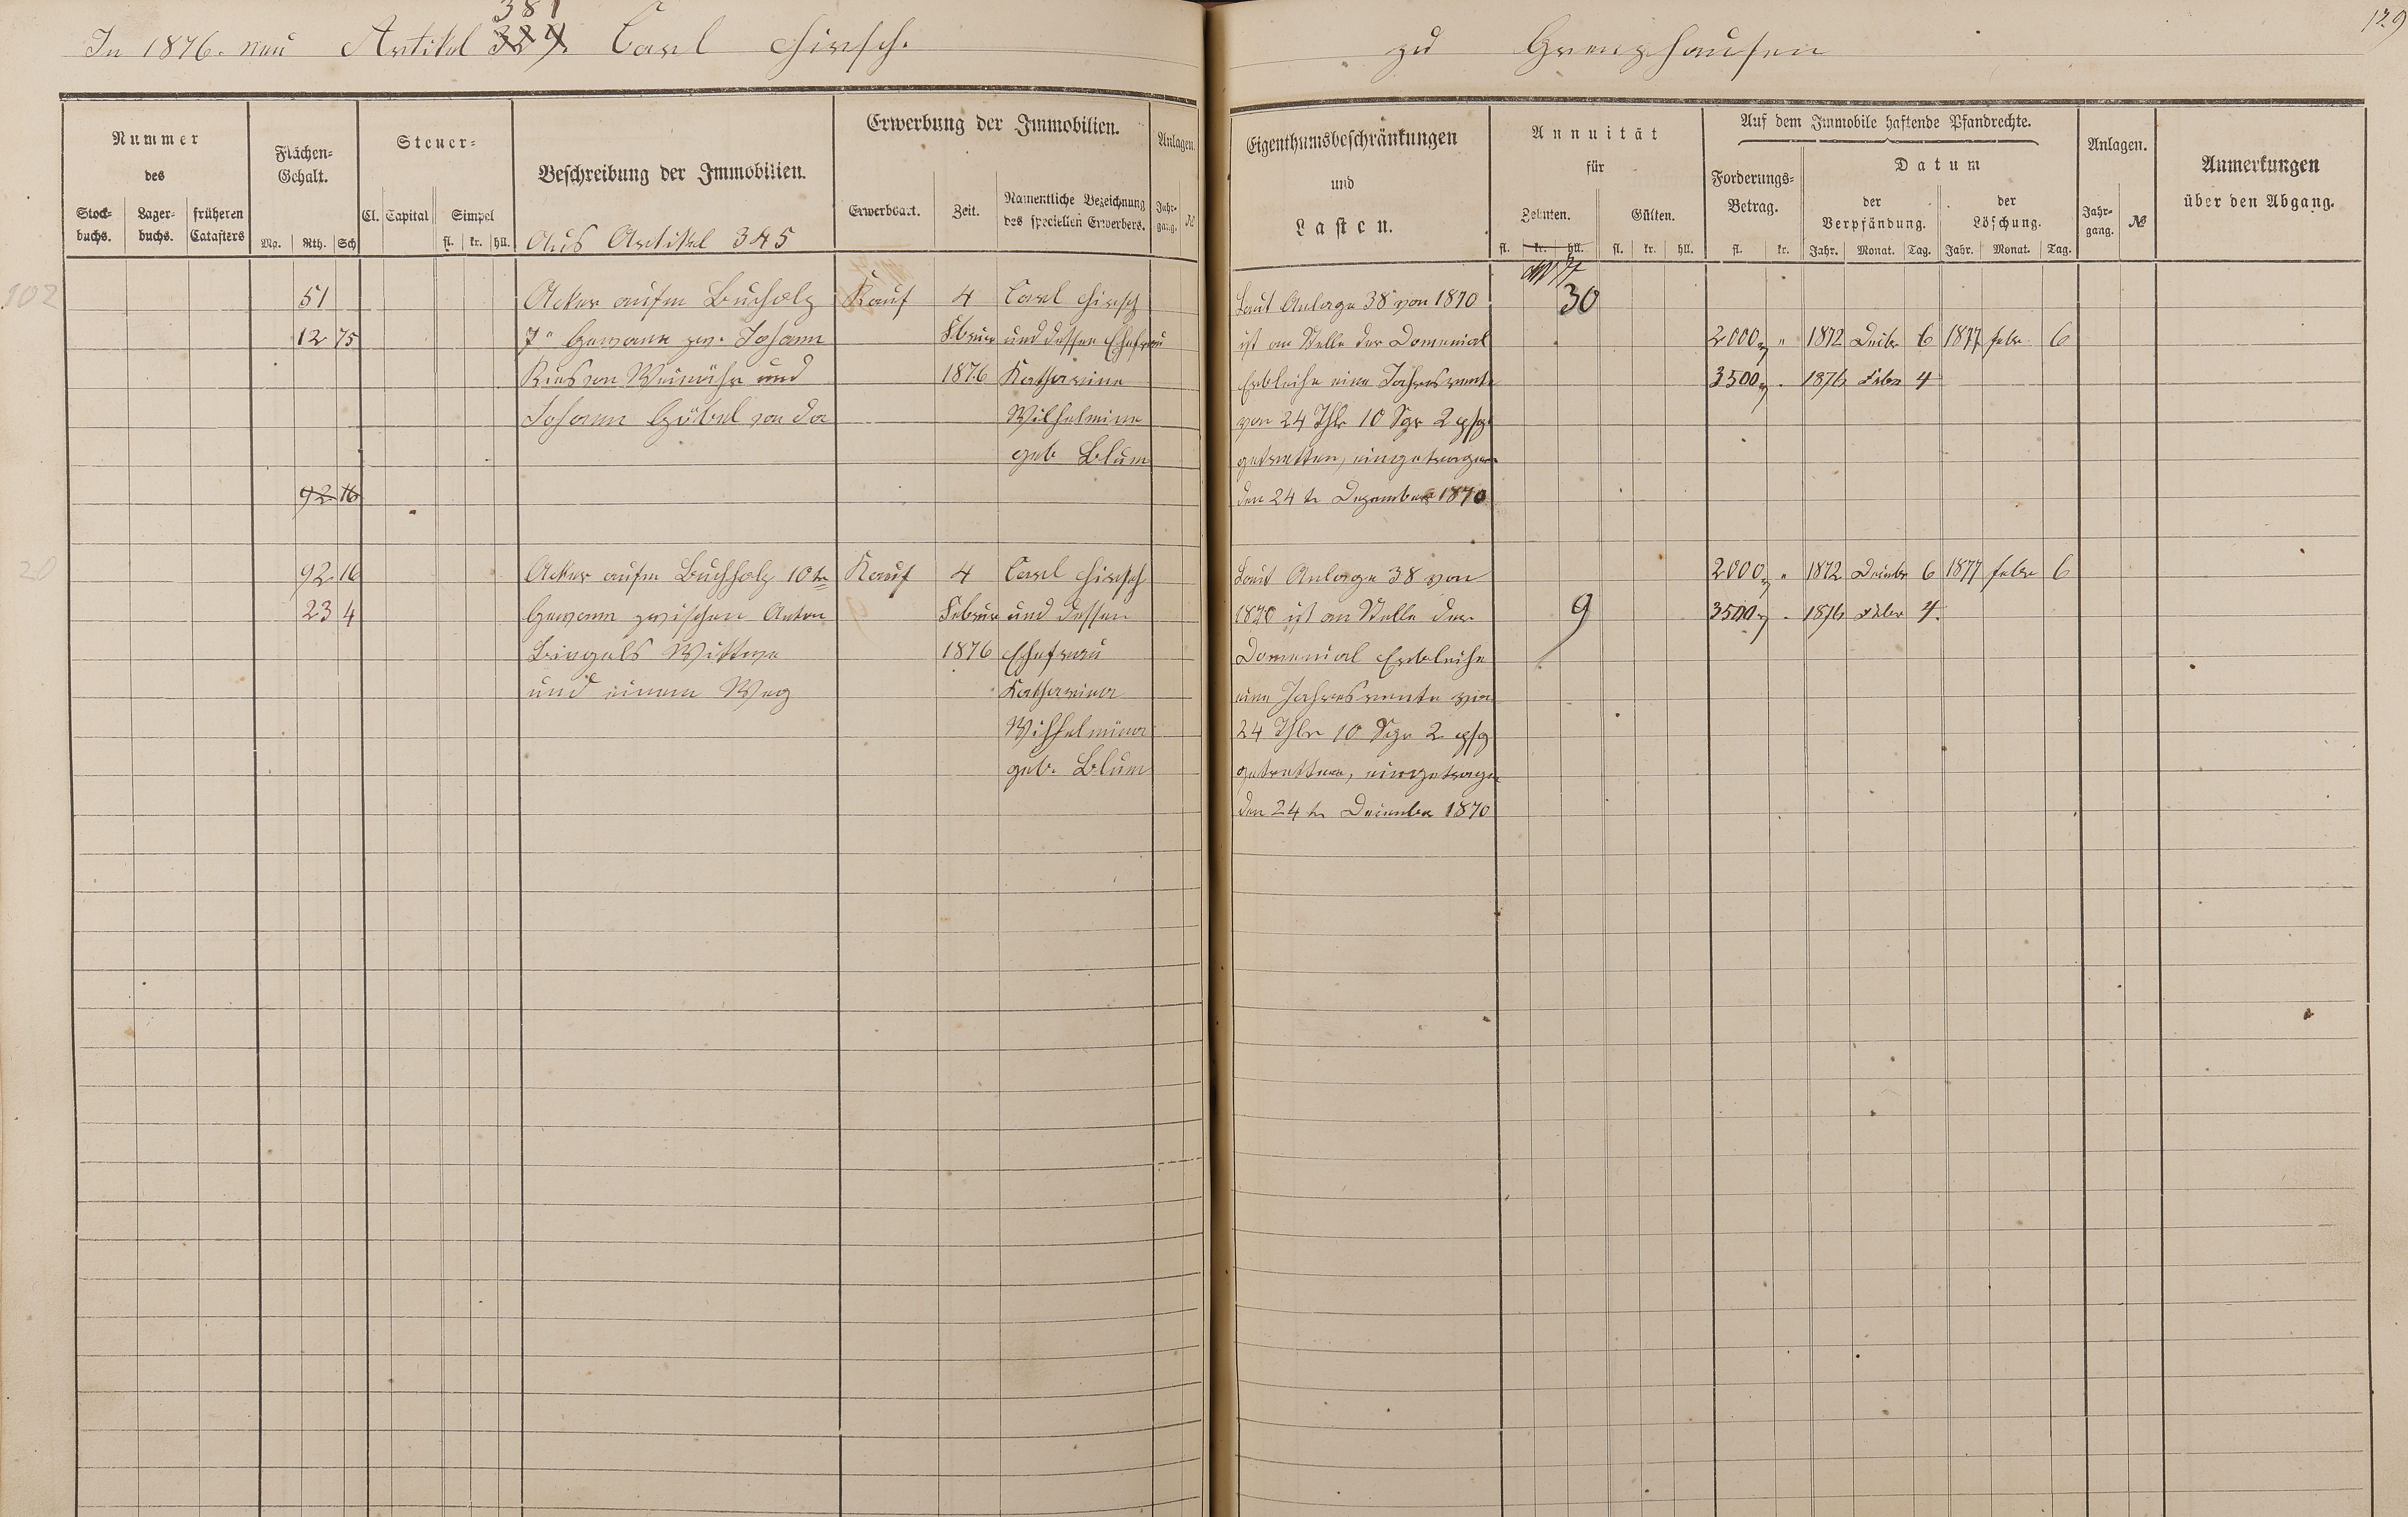 381
In 1876. neu Artikel 329. Carl Hirsch. zu Grenzhausen 129
Nummer des
Stock-buchs. Lager-buchs. früheren Catasters
Flächen-Gehalt.
Mg. Rth. Sch
Steuer-
Cl. Capital Simpel
fl. kr. hll.
Beschreibung der Immobilien.
Aus Artikel 345
Erwerbung der Immobilien.
Erwerbsart. Zeit. Namentliche Bezeichnung des speciellen Erwerbers.
Anlagen.
Jahr-gang. №
Eigenthumsbeschränkungen
und
Lasten.
Annuität
für
Zehnten. Gülten.
fl. kr. hll. fl. kr. hll.
Auf dem Immobile haftende Pfandrechte.
Forderungs-Betrag.
fl. kr.
Datum
der Verpfändung. der Löschung.
Jahr. Monat. Tag. Jahr. Monat. Tag.
Anlagen.
Jahr-gang. №
Anmerkungen
über den Abgang.
102 51 Acker aufm Bucholz Kauf 4 Carl Hirsch
12 75 7r Gewann zw. Johann Februar und dessen Ehefrau
Ries von und 1876 Katharine
Johann Göbel von da Wilhelmine
geb Blum
92 16
20 92 16 Acker aufm Buchholz 10te Kauf 4 Carl Hirsch
23 4 Gewann zwischen Anton Februar und dessen
Bingels Wittwe 1876 Ehefrau
und einem Weg Katharina
Wilhelmina
geb. Blum
Laut Anlage 38 von 1870 30
ist an Stelle der Domenial 2000 " 1872 Decbr 6 1877 febr. 6
Erbleihe eine Jahresrente 3500 . 1876 Febr 4
von 24 Thlr 10 Sgr 2 pfg
getretten, eingetragen
den 24 tr Dezember 1870
Laut Anlage 38 von 2000 " 1872 Decembr 6 1877 febr 6
1870 ist an Stelle der 9 3500 . 1876 Febr 4.
Domenial Erbleihe
eine Jahresrente von
24 Thlr 10 Sgr 2 pfg
getretten, eingetragen
den 24 tr December 1870